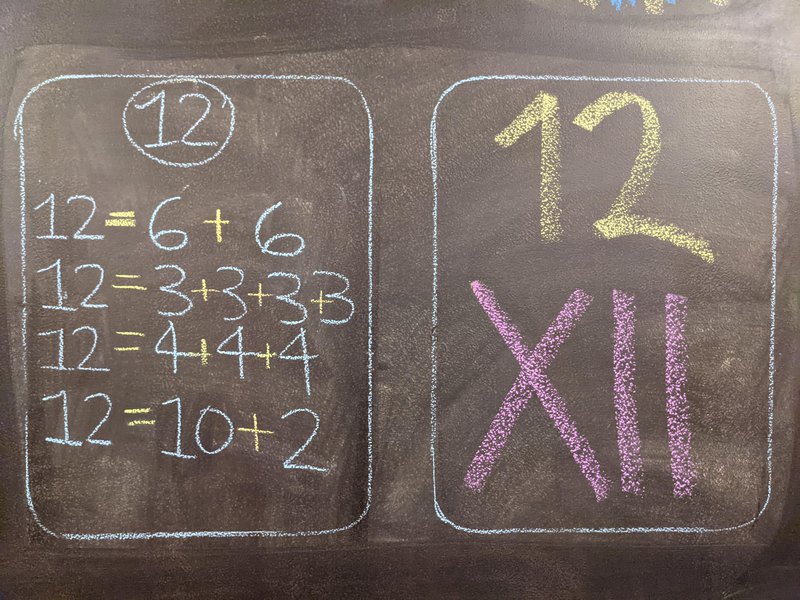 12
12 = 6 + 6
12 = 3+3+3+3
12 = 4+4+4
12 = 10+2
12
XII